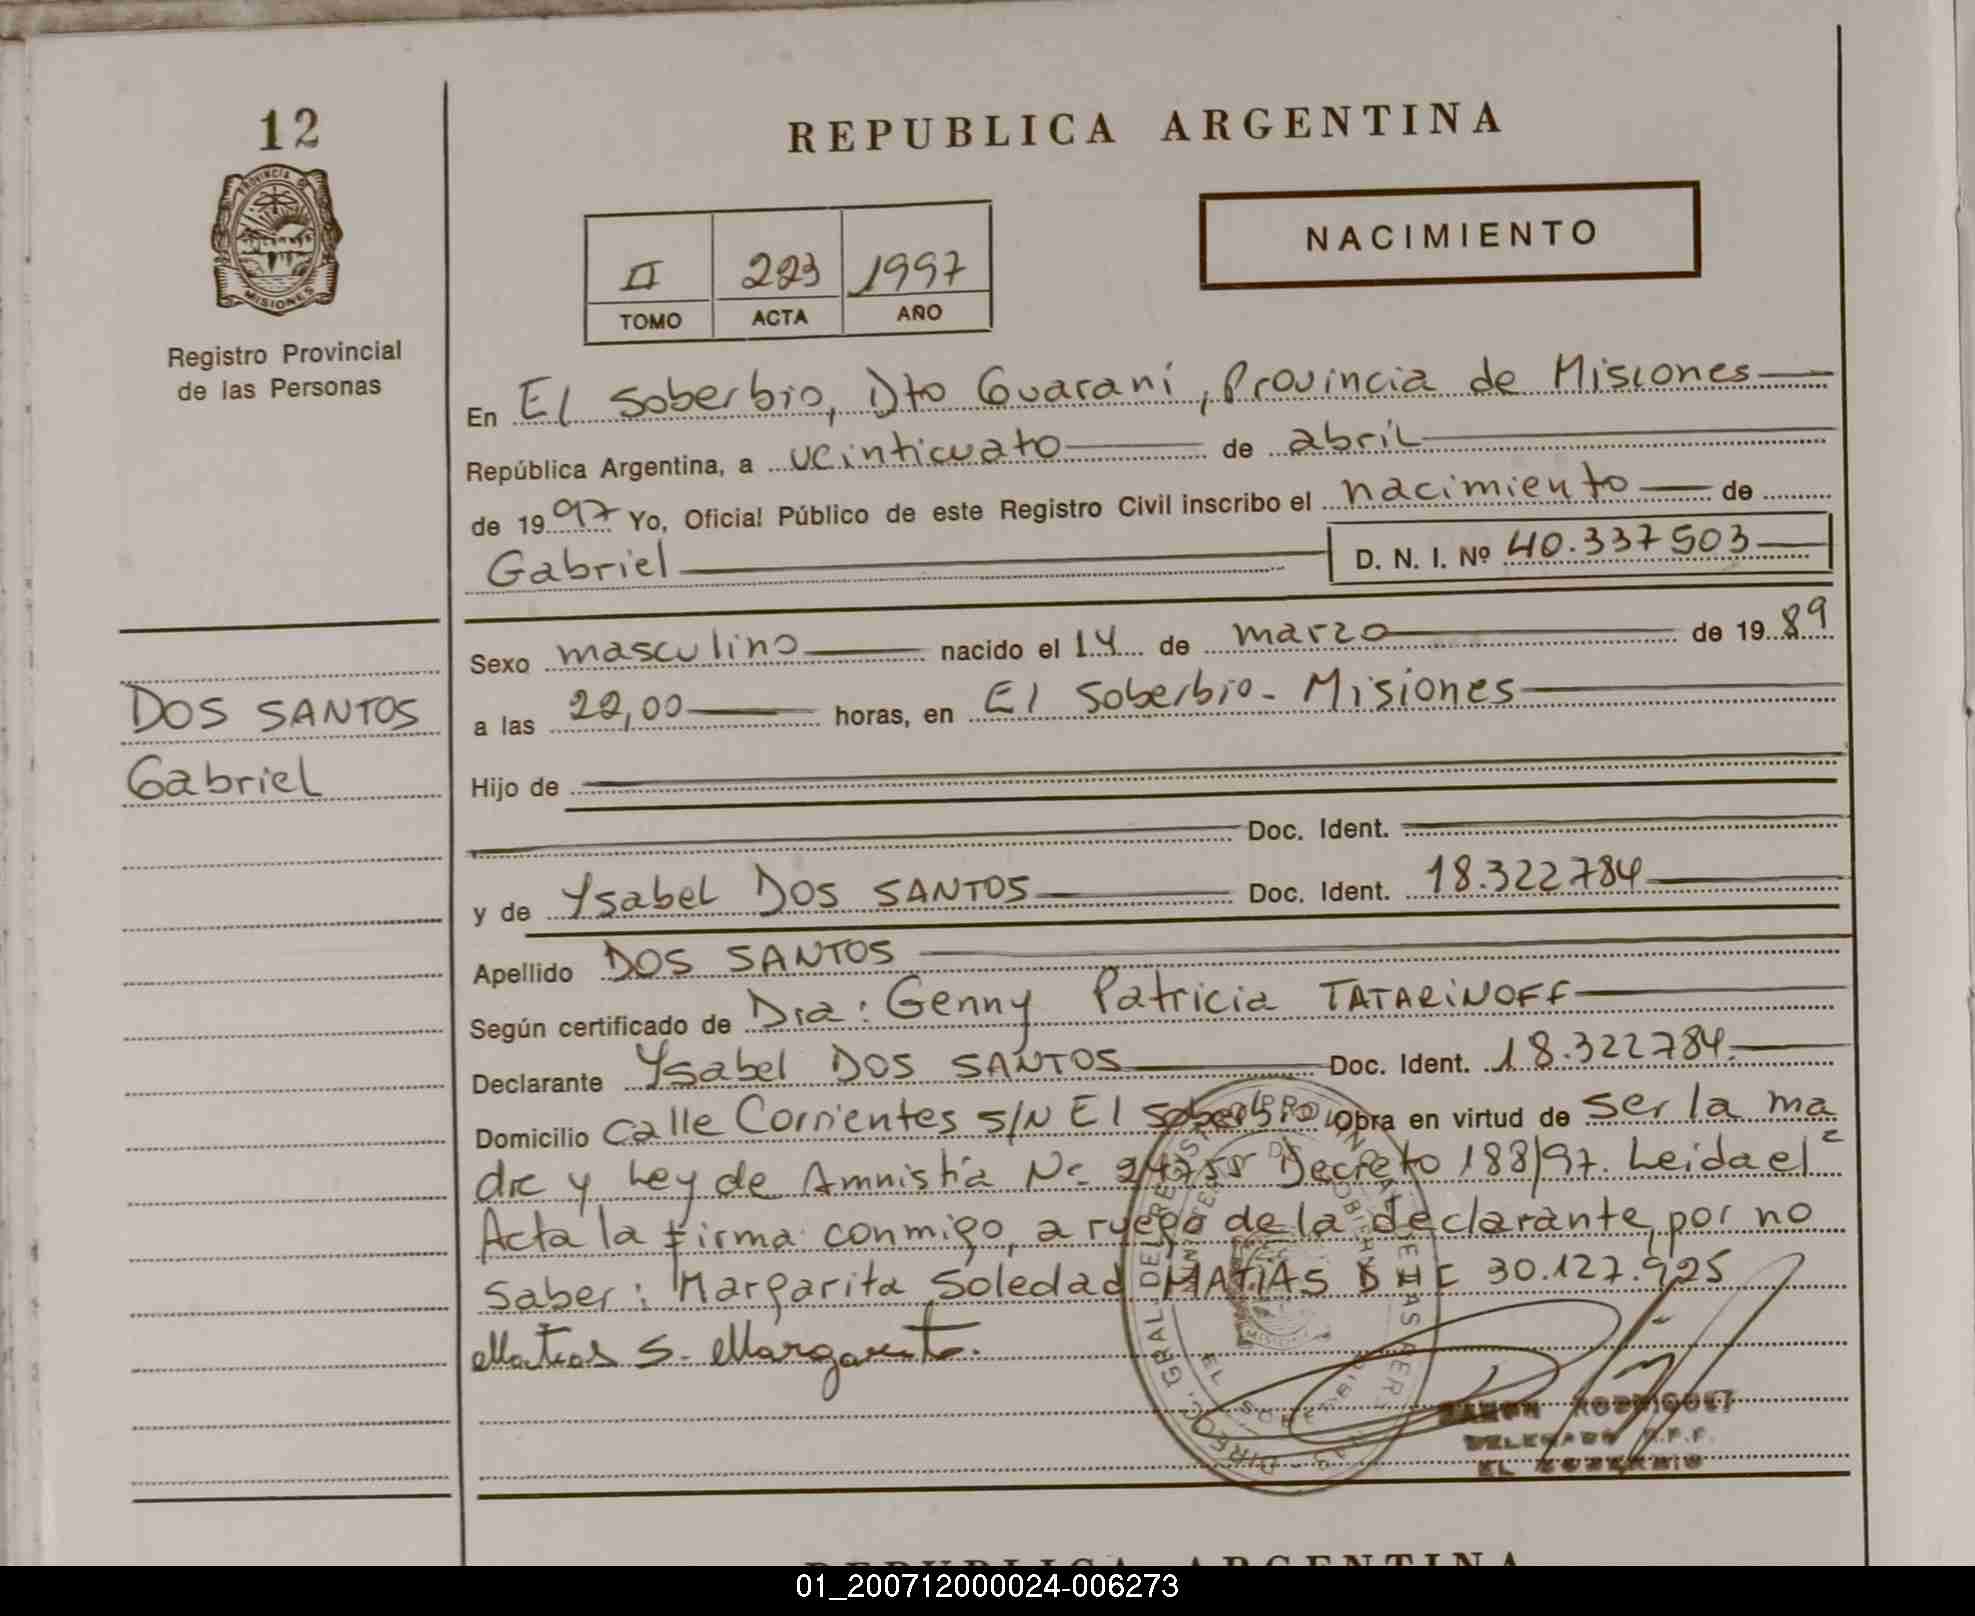 12
PROVINCIA DE
MISIONES
Registro Provincial
de las Personas
DOS SANTOS
Gabriel
REPUBLICA ARGENTINA
II 223 1997
TOMO ACTA AÑO
NACIMIENTO
En El Soberbio, Dto Guaraní, Provincia de Misiones
República Argentina, a veinticuato de abril
de 1997 Yo, Oficial Público de este Registro Civil inscribo el nacimiento de
Gabriel D. N. I. Nº 40.337503
Sexo masculino nacido el 14 de marzo de 1989
a las 22,00 horas, en El Soberbio - Misiones
Hijo de
Doc. Ident.
y de Ysabel DOS SANTOS Doc. Ident. 18.322784
Apellido DOS SANTOS
Según certificado de Dra: Genny Patricia TATARINOFF
Declarante Ysabel DOS SANTOS Doc. Ident. 18.322784.
Domicilio Calle Corrientes S/N El Soberbio Obra en virtud de ser la ma
dre y Ley de Amnistía Nº 24755 Decreto 188/97. Leida el
Acta la firma conmigo, a ruego de la declarante, por no
saber: Margarita Soledad MATIAS 30.127.925
Matias S. Margarita.
RAMON RODRIGUEZ
DELEGADO R.P.P.
EL SOBERBIO
REPUBLICA ARGENTINA
01_200712000024-006273